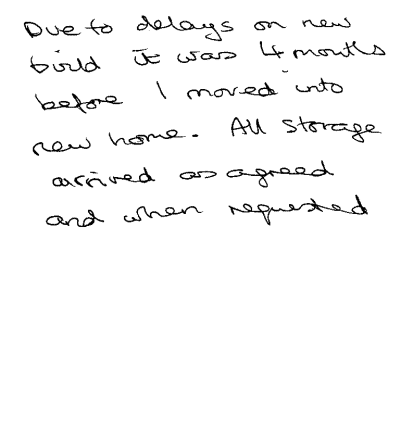 Due to delays on new
build it was 4 months
before I moved into
new home. All storage
arrived as agreed
and when requested